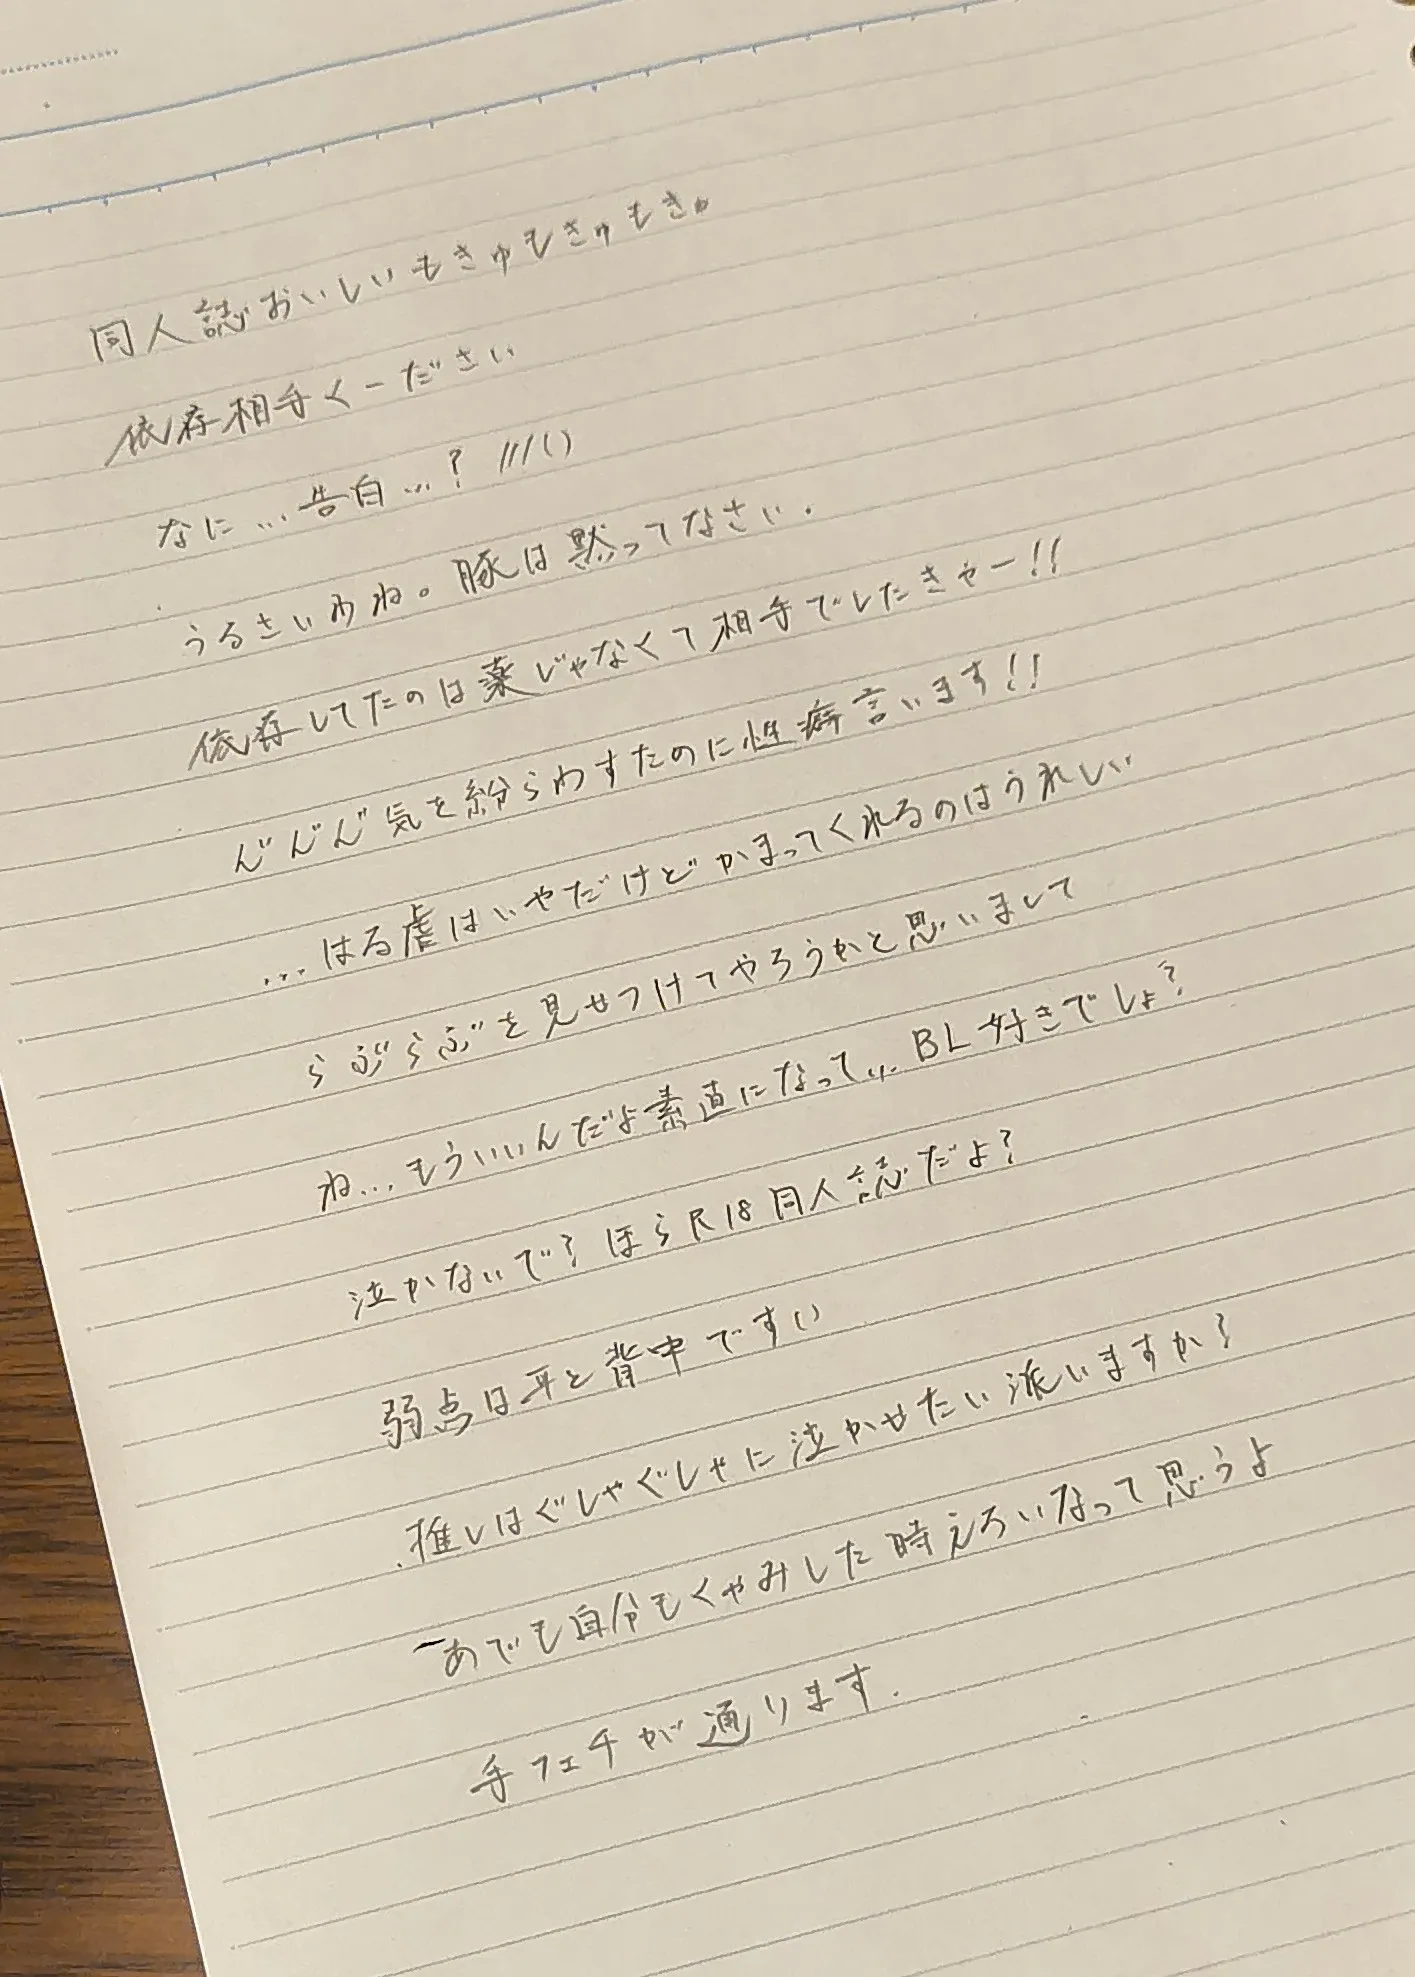 同人誌おいしいもきゅもきゅもき。
依存相手くーださい
なに…告白…? ///()
うるさいわね。豚は黙ってなさい.
依存してたのは薬じゃなくて相手でしたきゃー!!
ん゛ん゛ん゛気を紛らわすたのに性癖言います!!
…はる虐はいやだけどかまってくれるのはうれしい
らぶらぶを見せつけてやろうかと思いまして
ね…もういいんだよ素直になって… BL好きでしょ?
泣かないで? ほらR18同人誌だよ?
弱点は耳と背中ですい
推しはぐしゃぐしゃに泣かせたい派いますか?
あでも自分もくやみした時えろいなって思うよ
手フェチが通ります.